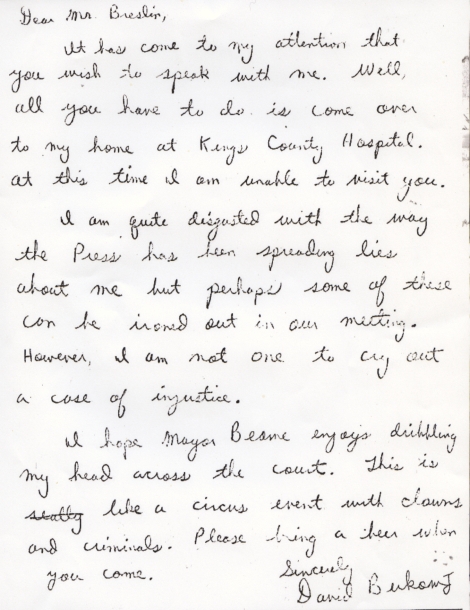 Dear Mr. Breslin,
It has come to my attention that
you wish to speak with me. Well,
all you have to do is come over
to my home at Kings County Hospital.
at this time I am unable to visit you.
I am quite disgusted with the way
the Press has been spreading lies
about me but perhaps some of these
can be ironed out in our meeting.
However, I am not one to cry out
a case of injustice.
I hope Mayor Beame enjoys dribbling
my head across the court. This is
like a circus event with clowns
and criminals. Please bring a beer when
you come.
Sincerely
David Berkowitz